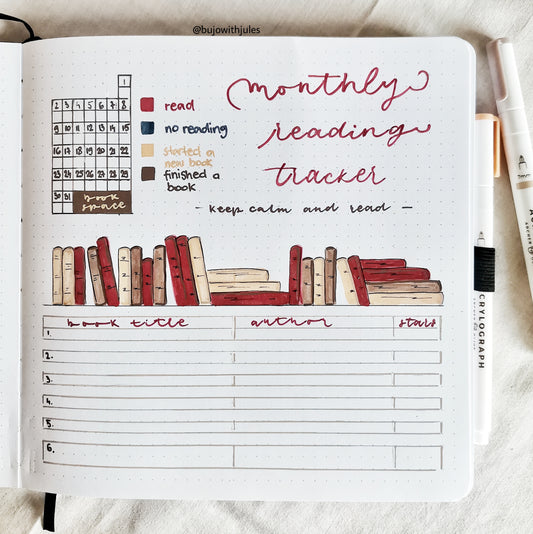 @bujowithjules
monthly
reading
tracker
- keep calm and read -
1
2 3 4 5 6 7 8
9 10 11 12 13 14 15
16 17 18 19 20 21 22
23 24 25 26 27 28 29
30 31
book
space
read
no reading
started a
new book
finished a
book
book title author stars
1.
2.
3.
4.
5.
6.
A
CRYLOGRAPH
A